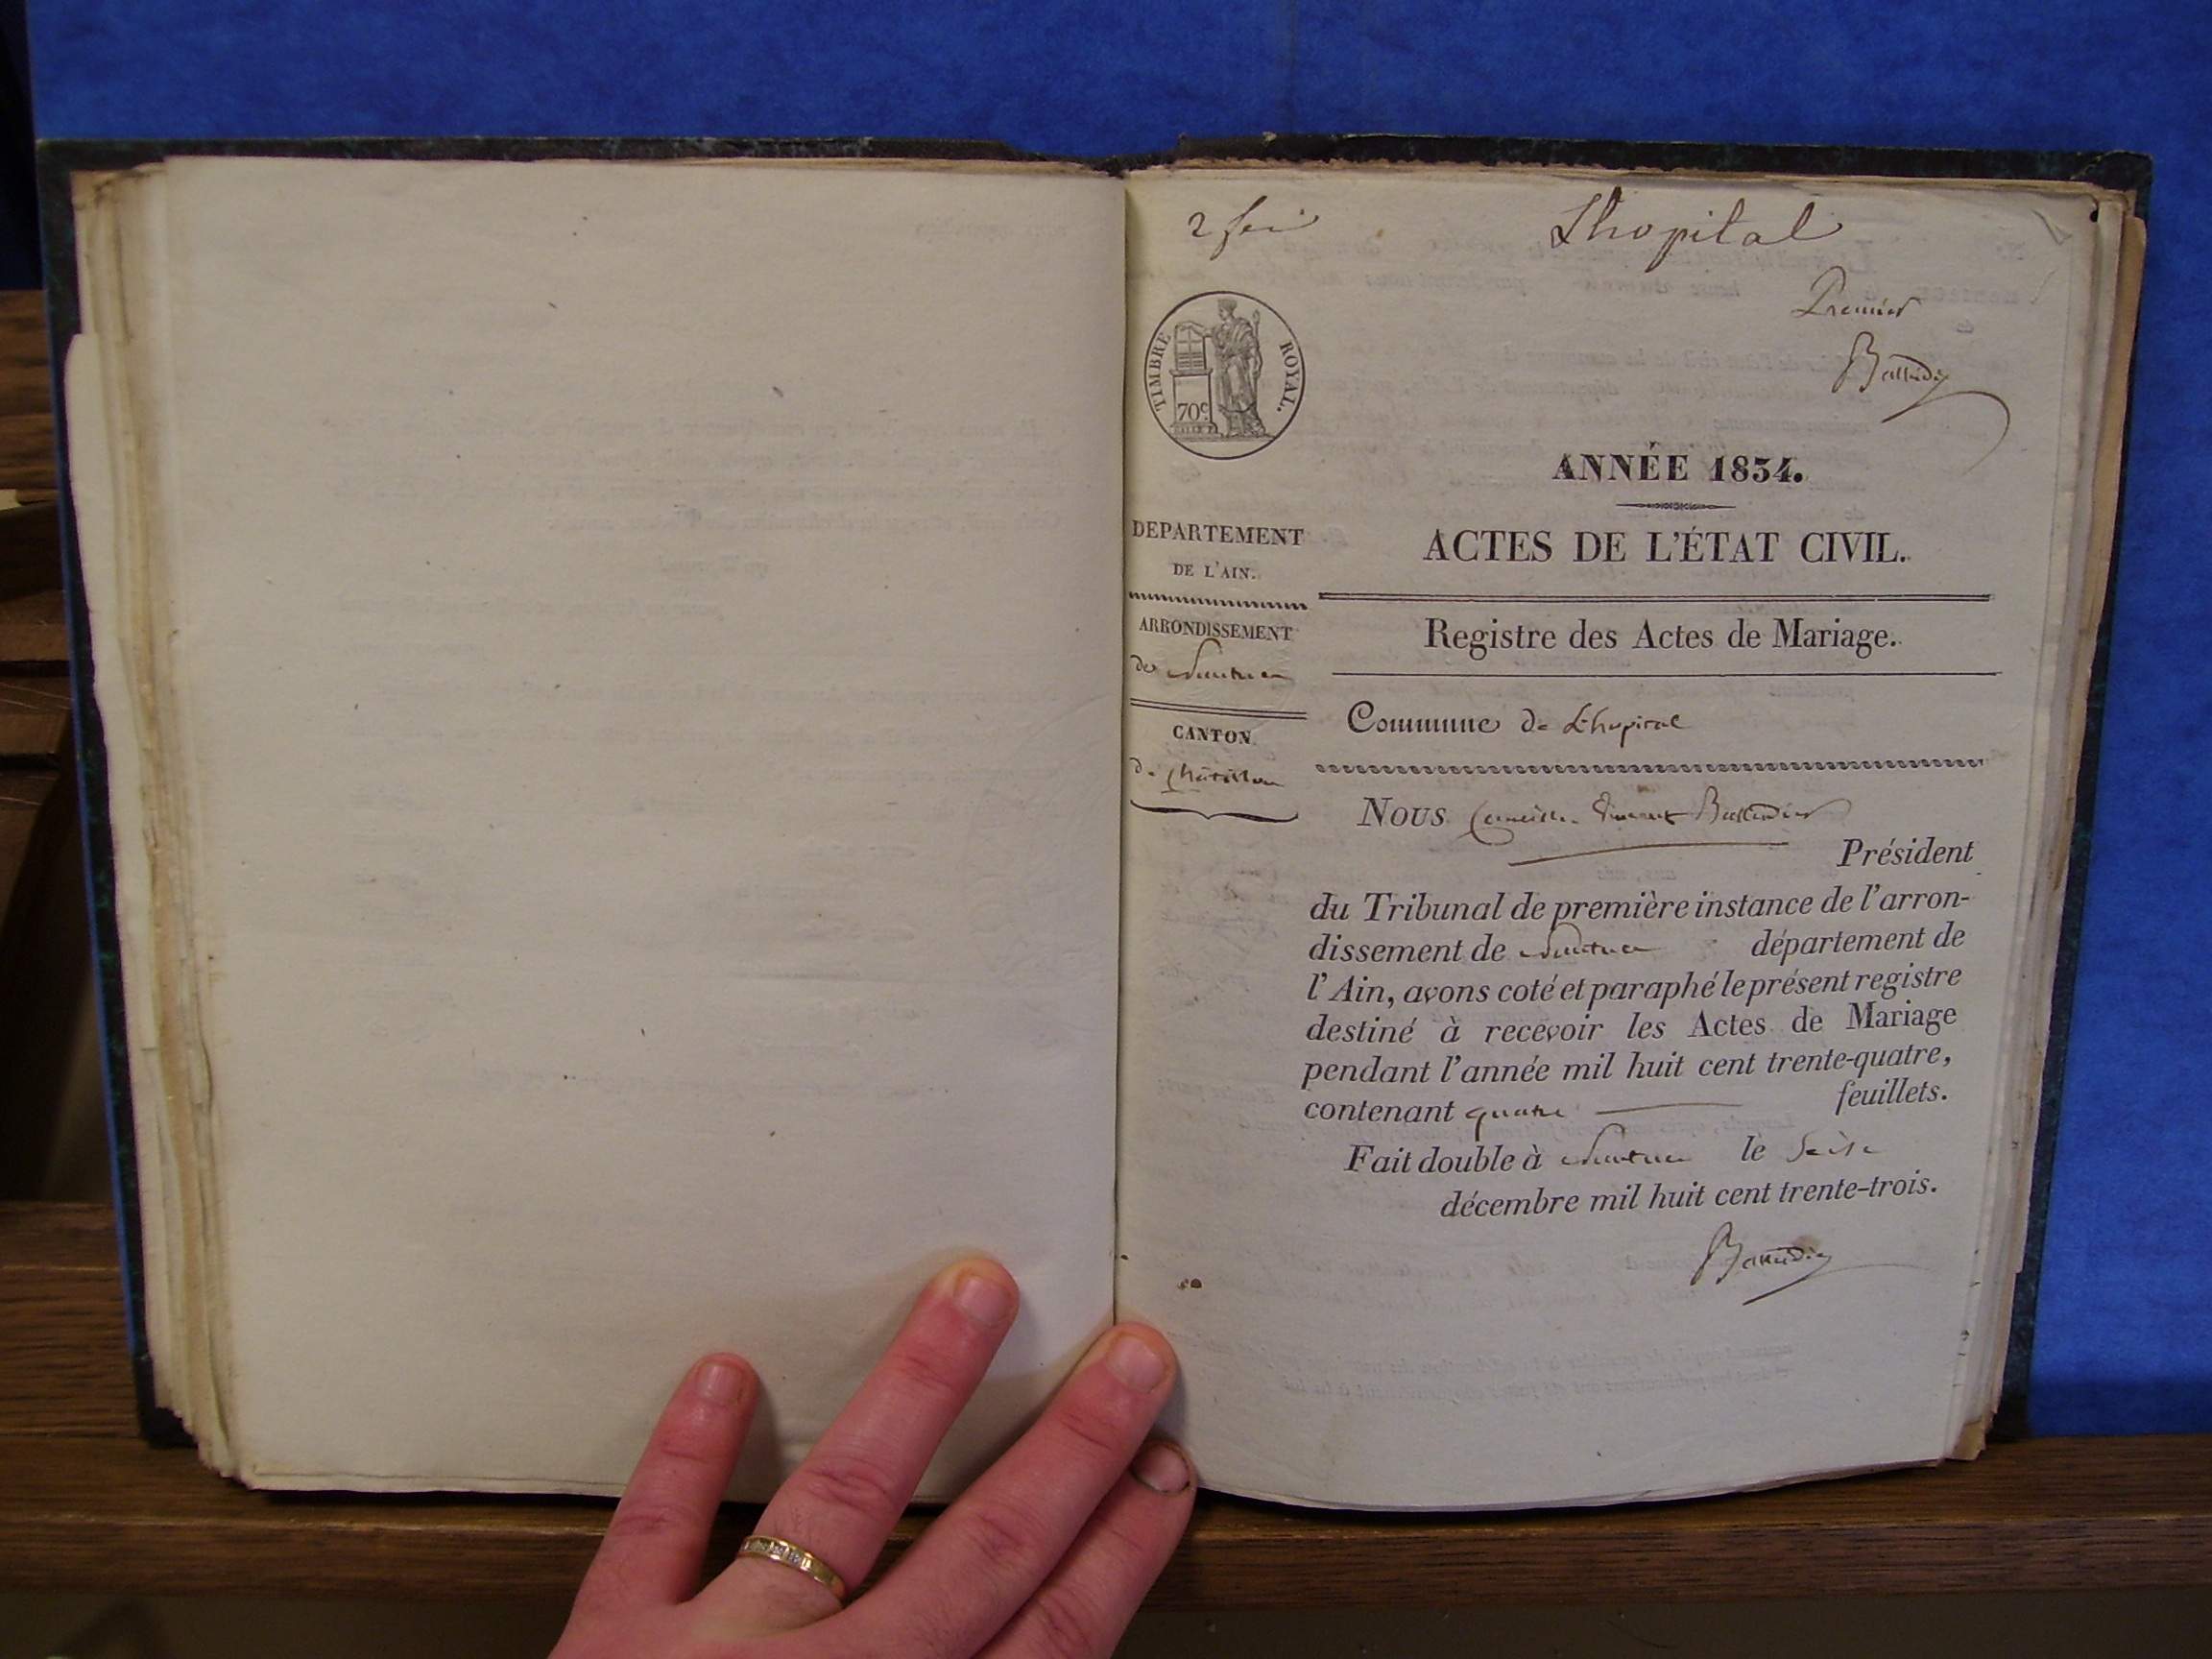 Lhopital
Premier
TIMBRE ROYAL.
70c
ANNÉE 1834.
DEPARTEMENT
DE L'AIN.
ACTES DE L'ÉTAT CIVIL.
ARRONDISSEMENT
de Nantua
Registre des Actes de Mariage.
CANTON
de Châtillon
Commune de Lhopital
NOUS
Président
du Tribunal de première instance de l'arron-
dissement de Nantua département de
l'Ain, avons coté et paraphé le présent registre
destiné à recevoir les Actes de Mariage
pendant l'année mil huit cent trente-quatre,
contenant quatre feuillets.
Fait double à Nantua le Seize
décembre mil huit cent trente-trois.